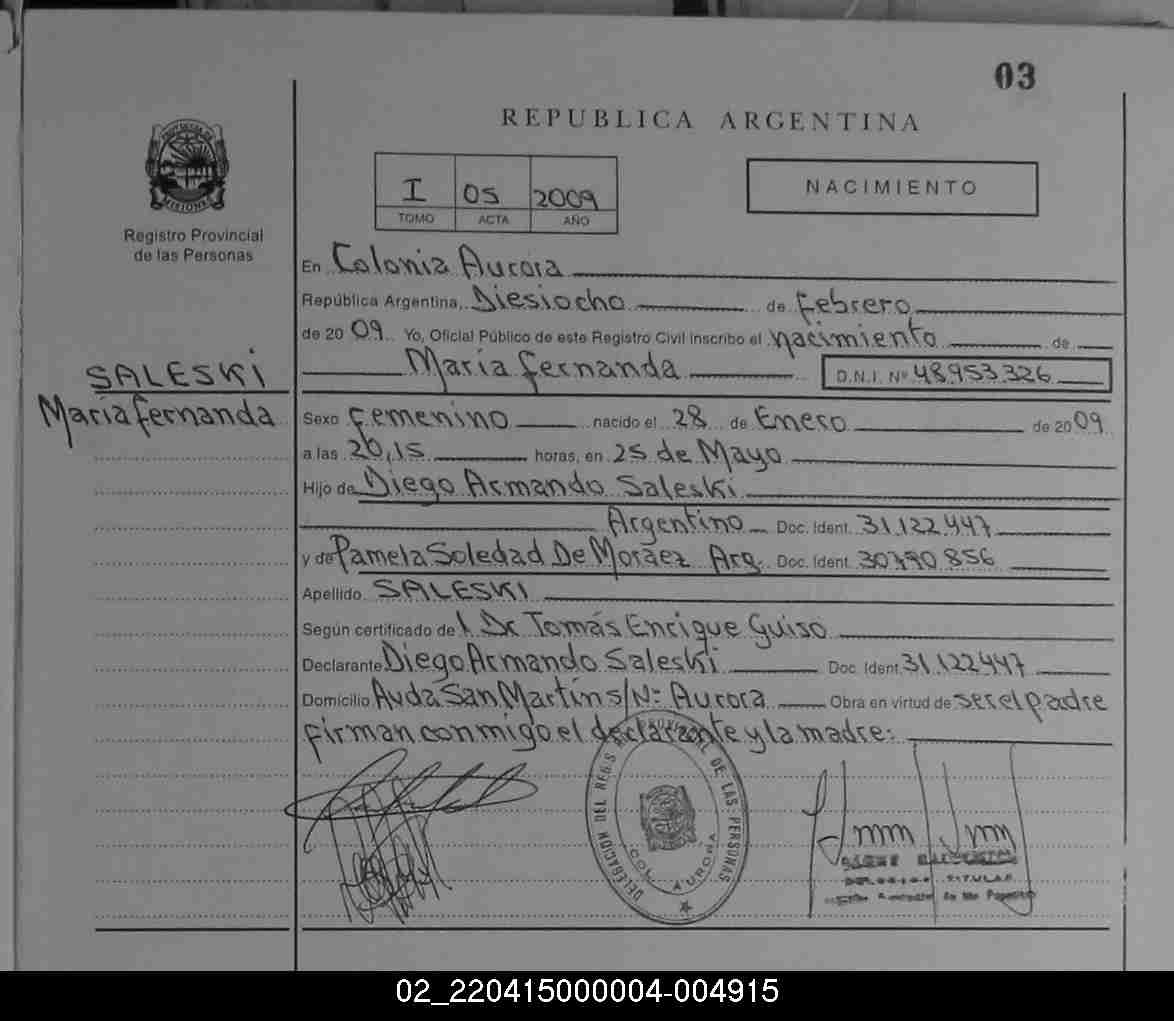 03
REPUBLICA ARGENTINA
PROVINCIA DE
MISIONES
Registro Provincial
de las Personas
I 05 2009
TOMO ACTA AÑO
NACIMIENTO
SALESKI
María fernanda
En Colonia Aurora
República Argentina, Diesiocho de febrero
de 2009 Yo, Oficial Público de este Registro Civil inscribo el nacimiento de
María fernanda D.N.I. Nº 48.953.326
Sexo femenino nacido el 28 de Enero de 2009
a las 20,15 horas, en 25 de Mayo
Hijo de Diego Armando Saleski
Argentino Doc. Ident. 31.122.447
y de Pamela Soledad De Moraez Arg. Doc. Ident. 30.790.856
Apellido SALESKI
Según certificado de l Dr Tomás Enrique Guiso
Declarante Diego Armando Saleski Doc. Ident. 31.122.447
Domicilio Avda San Martín s/Nº Aurora Obra en virtud de ser el padre
firman conmigo el declarante y la madre:
DELEGACION DEL REGIS PROVINCIAL DE LAS PERSONAS
COL. AURORA
TITULAR
02_220415000004-004915